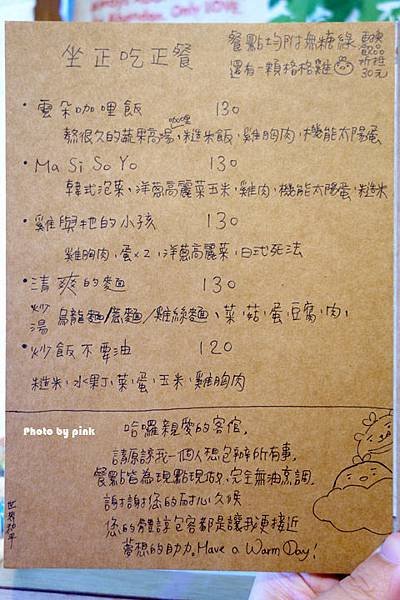 坐正吃正餐
餐點均附無糖綠
還有一顆格格雞
要換
飲品
折抵
30元
·雲朵咖哩飯 130
咖哩
熬很久的蔬果高湯、糙米飯、雞胸肉、機能太陽蛋
·Ma Si So Yo 130
韓式泡菜、洋蔥高麗菜玉米、雞肉、機能太陽蛋、糙米
·雞與牠的小孩 130
雞胸肉、蛋×2、洋蔥高麗菜、日式死法
·清爽的麵 130
炒
湯 烏龍麵/蔥麵/雞絲麵、菜、菇、蛋、豆腐、肉、
·炒飯不要油 120
糙米、水果丁、菜、蛋、玉米、雞胸肉
Photo by pink
哈囉親愛的客倌,
請原諒我一個人想包辦所有事,
餐點皆為現點現做,完全無油烹調,
謝謝您的耐心久候
您的體諒包容都是讓我更接近
夢想的助力。Have a Warm Day!
世界和平